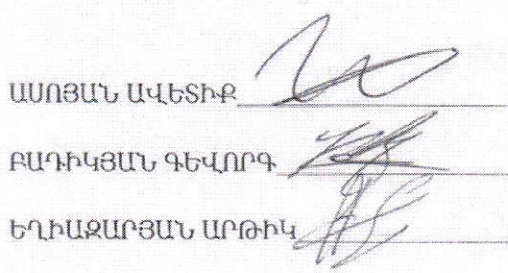 ԱՍՈՅԱՆ ԱՎԵՏԻՔ
ԲԱԴԻԿՅԱՆ ԳԵՎՈՐԳ
ԵՂԻԱԶԱՐՅԱՆ ԱՐԹԻԿ